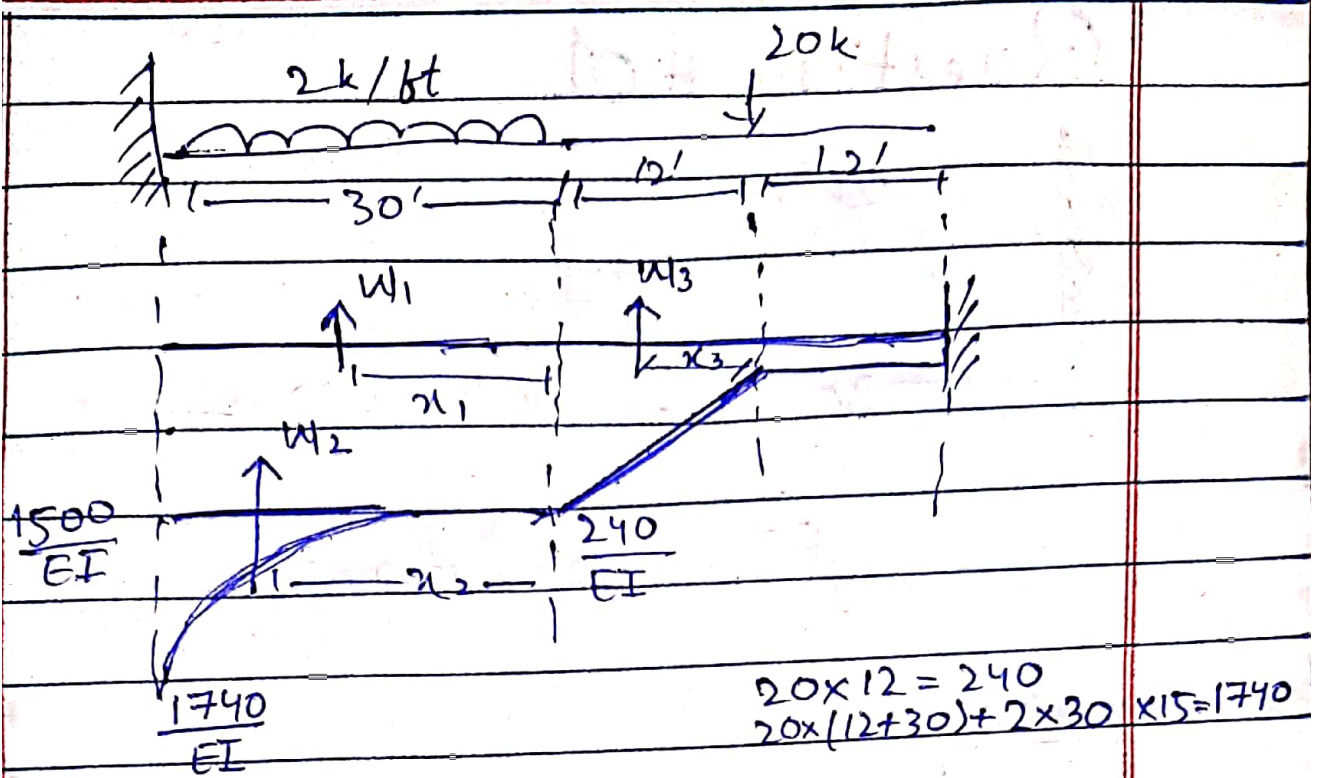 20k
2k/ft
30'
12'
12'
W1
W3
x1
x3
W2
1500
EI
x2
240
EI
1740
EI
20×12=240
20×(12+30)+2×30×15=1740